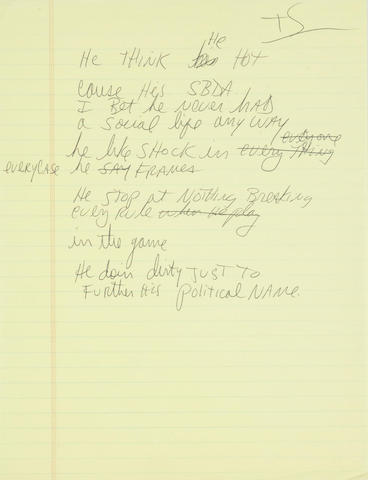 TS
He THINK he He HOT
cause Hes SBDA
I Bet he never HAD
a social life any WAY
he like SHOCK in every thing everyone
everycase he SAY FRAMES
He STOP at NOTHING Breaking
every rule when he play
in the game
He doin dirty JUST TO
FURTHER His Political NAME.